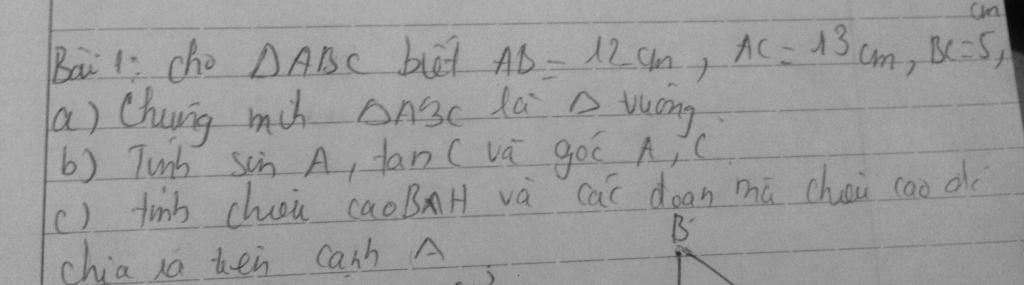 Bài 1: cho ΔABC biết AB = 12 cm, AC = 13 cm, BC = 5 cm,
a) Chứng mih ΔABC là Δ vuông.
b) Tính sin A, tan C và góc A, C.
c) tính chiều cao BH và các đoạn mà chiều cao đó
chia ra trên cạnh A
B